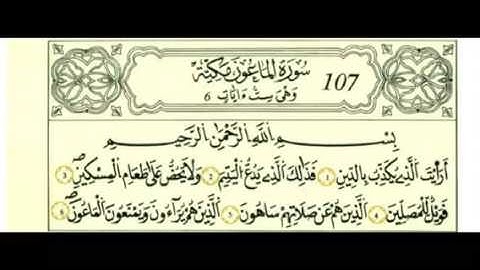 سُورَةُ الْمَاعُونَ مَكِّيَّةٌ
107
وَهْيَ سِتُّ ءَايَاتٍ 6
بِسْمِ اللَّهِ الرَّحْمَٰنِ الرَّحِيمِ
أَرَٰيْتَ الَّذِي يُكَذِّبُ بِالدِّينِ 1 فَذَٰلِكَ الَّذِي يَدُعُّ الْيَتِيمَ 2 وَلَا يَحُضُّ عَلَىٰ طَعَامِ الْمِسْكِينِ 3
فَوَيْلٌ لِّلْمُصَلِّينَ 4 الَّذِينَ هُمْ عَن صَلَاتِهِمْ سَاهُونَ 5 الَّذِينَ هُمْ يُرَآءُونَ وَيَمْنَعُونَ الْمَاعُونَ 6